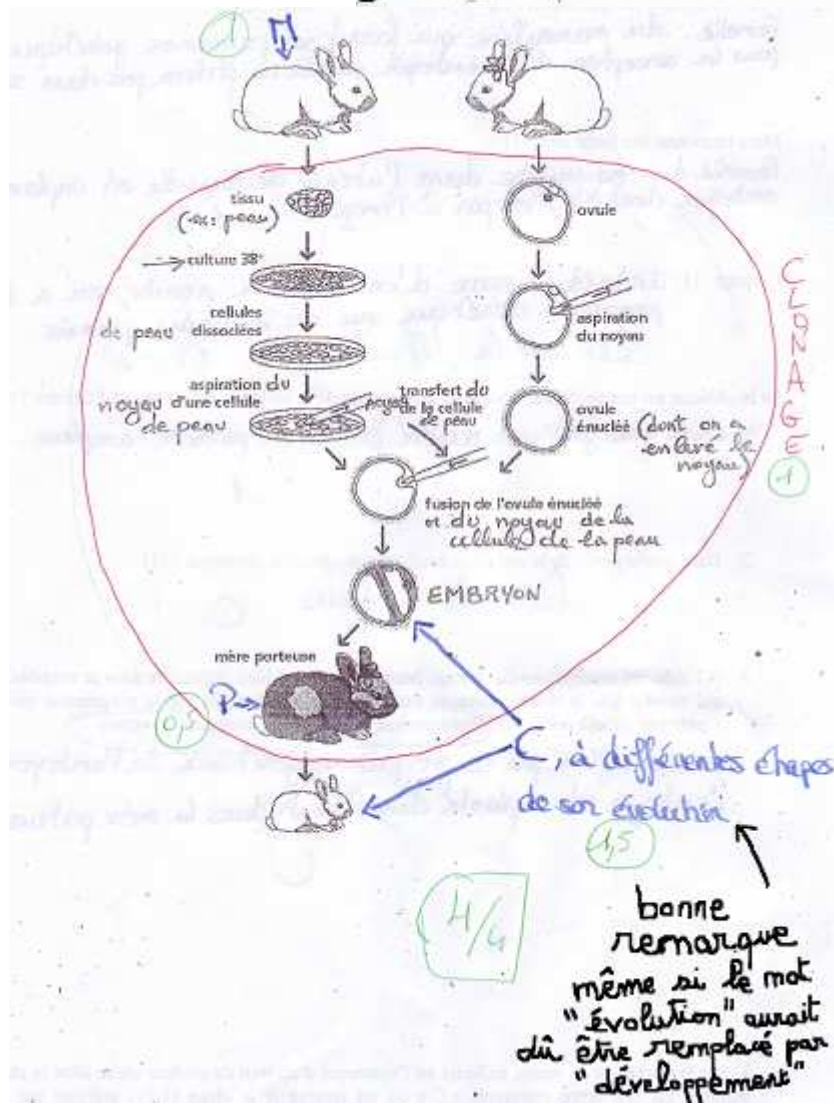 1
tissu
(ex: peau)
ovule
culture 38°
cellules
dissociées
de peau
aspiration
du noyau
aspiration du
noyau d'une cellule
de peau
transfert du
noyau de la cellule
de peau
ovule
énucléé (dont on a
enlevé le
noyau)
CLONAGE
1
fusion de l'ovule énucléé
et du noyau de la
cellule de la peau
EMBRYON
mère porteuse
P
0,5
C, à différentes étapes
de son évolution
1,5
4/4
bonne
remarque
même si le mot
"évolution" aurait
dû être remplacé par
"développement"